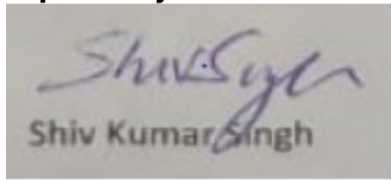 ShivSingh
Shiv Kumar Singh